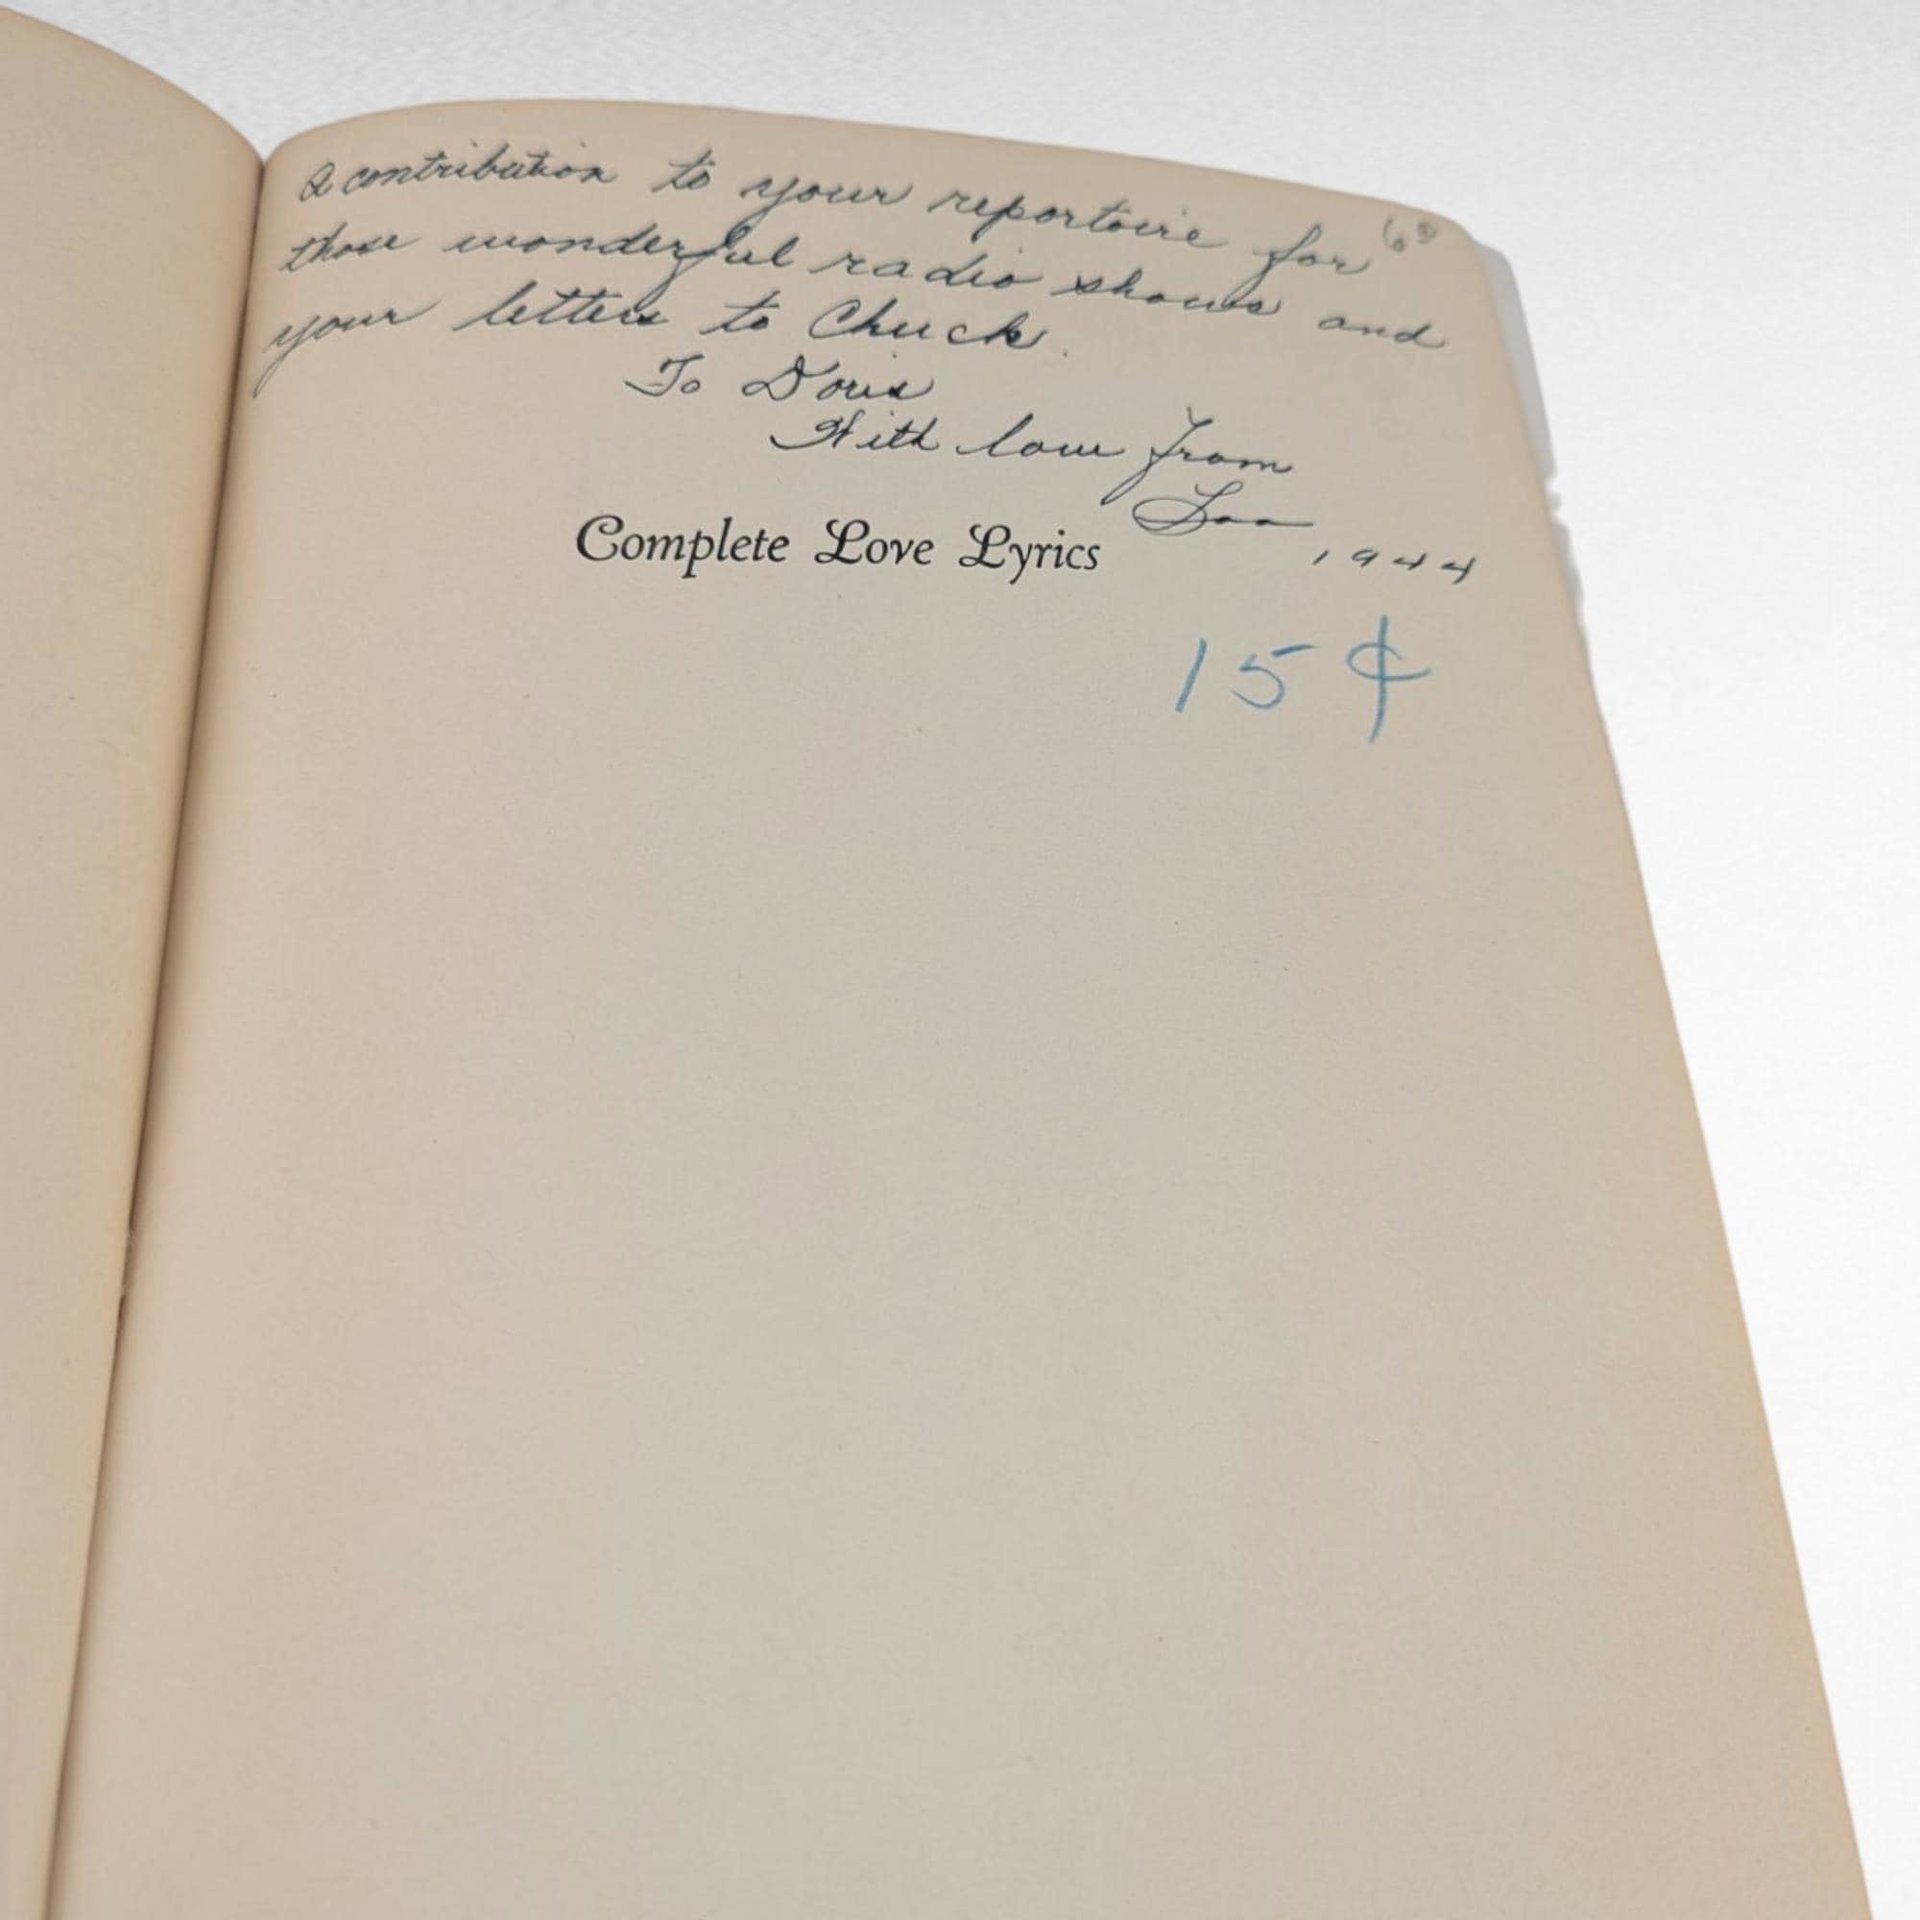 A contribution to your reportoire for
those wonderful radio shows and
your letters to Chuck.
To Doris
With love from
1944
Complete Love Lyrics
15¢